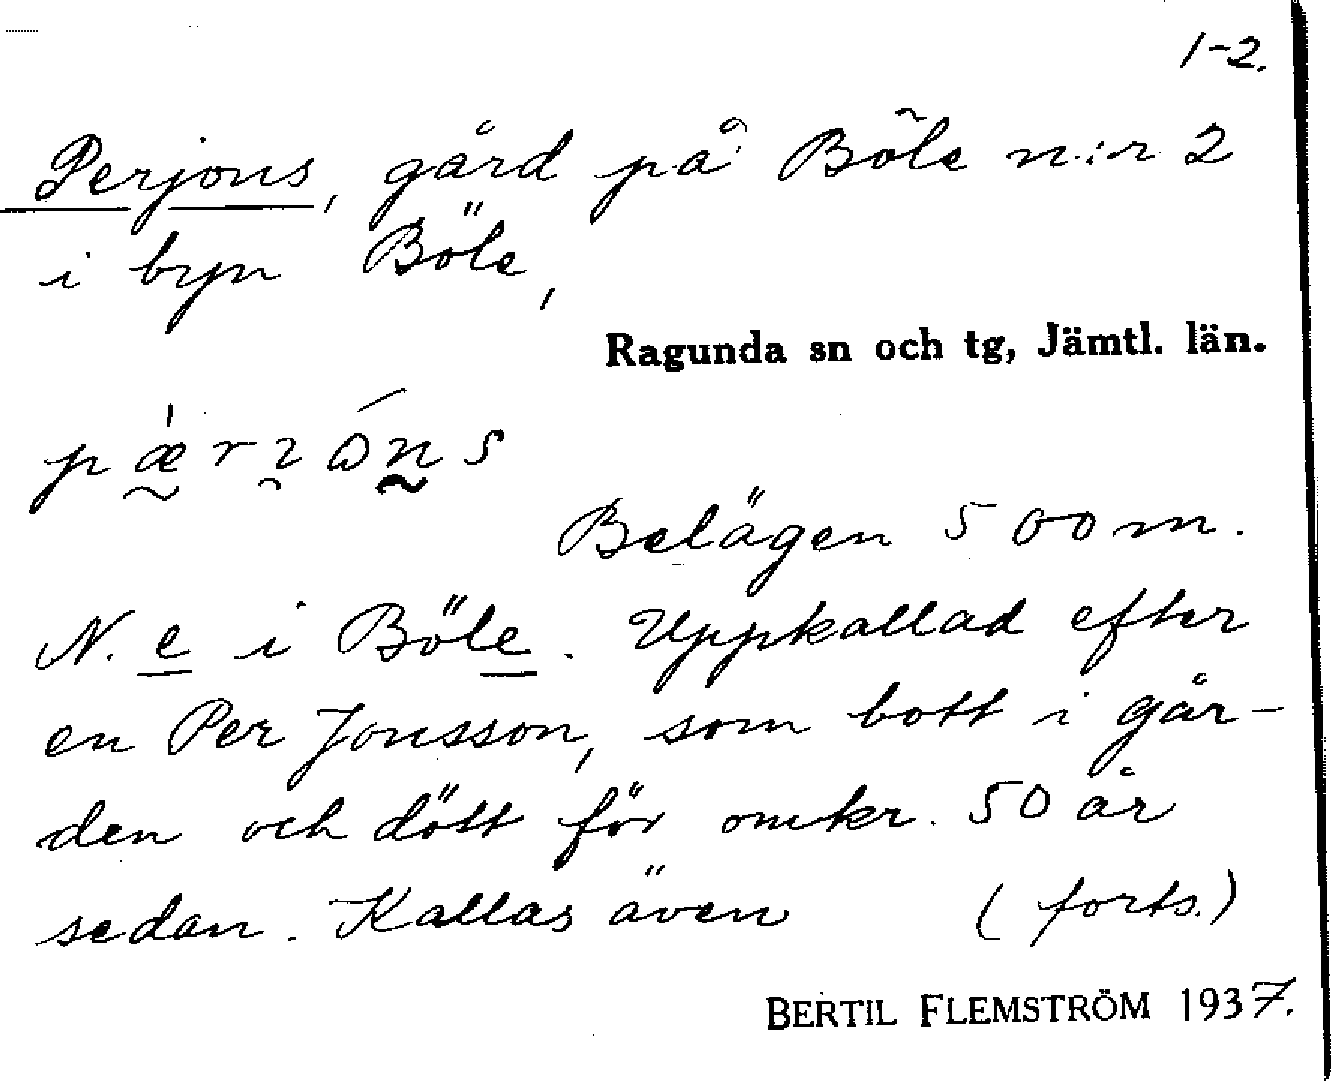 1-2.
Perjons, gård på Böle n:r 2
i byn Böle,
Ragunda sn och tg, Jämtl. län.
Belägen 500 m.
N. e i Böle. Uppkallad efter
en Per Jonsson, som bott i går-
den och dött för omkr. 50 år
sedan. Kallas även (forts.)
BERTIL FLEMSTRÖM 1937.